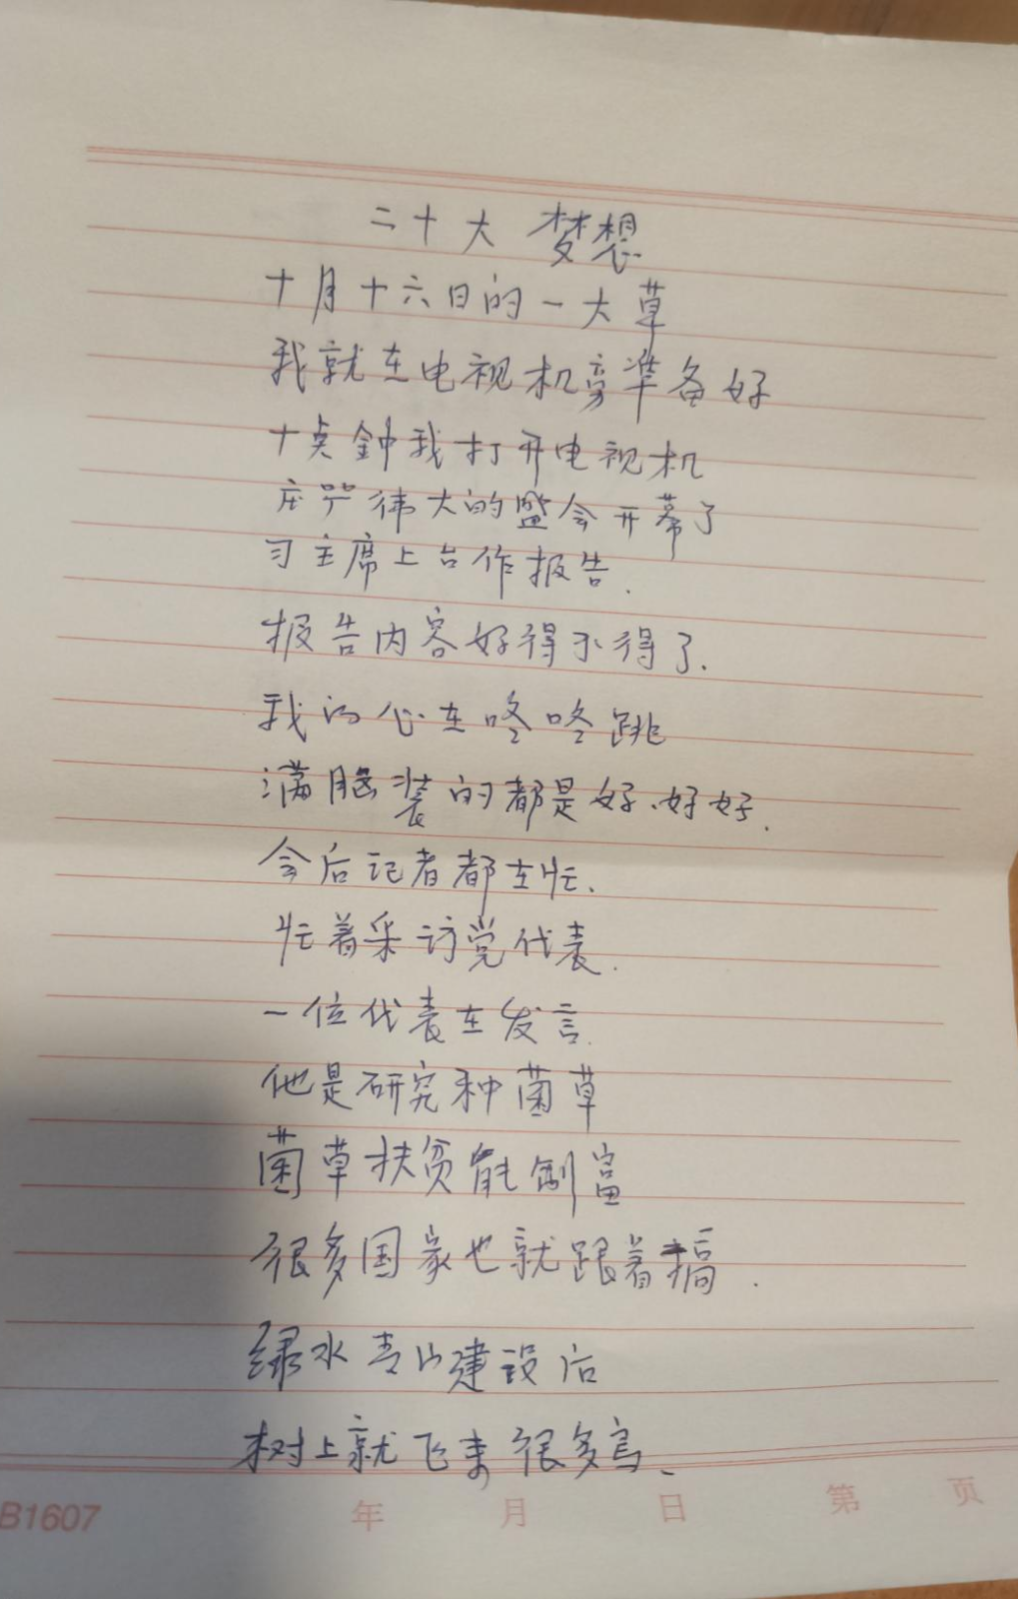 二十大 梦想
十月十六日的一大草
我就在电视机旁準备好
十点鈡我打开电视机
庄严伟大的盛会开幕了
习主席上台作报告.
报告内容好得不得了.
我的心在咚咚跳
满脑装的都是好、好好.
会后记者都在忙.
忙着采访党代表.
一位代表在发言.
他是研究种菌草
菌草扶贫能制富
很多国家也就跟着搞.
绿水青山建设后
树上就飞来很多鸟、
B1607 年 月 日 第 页